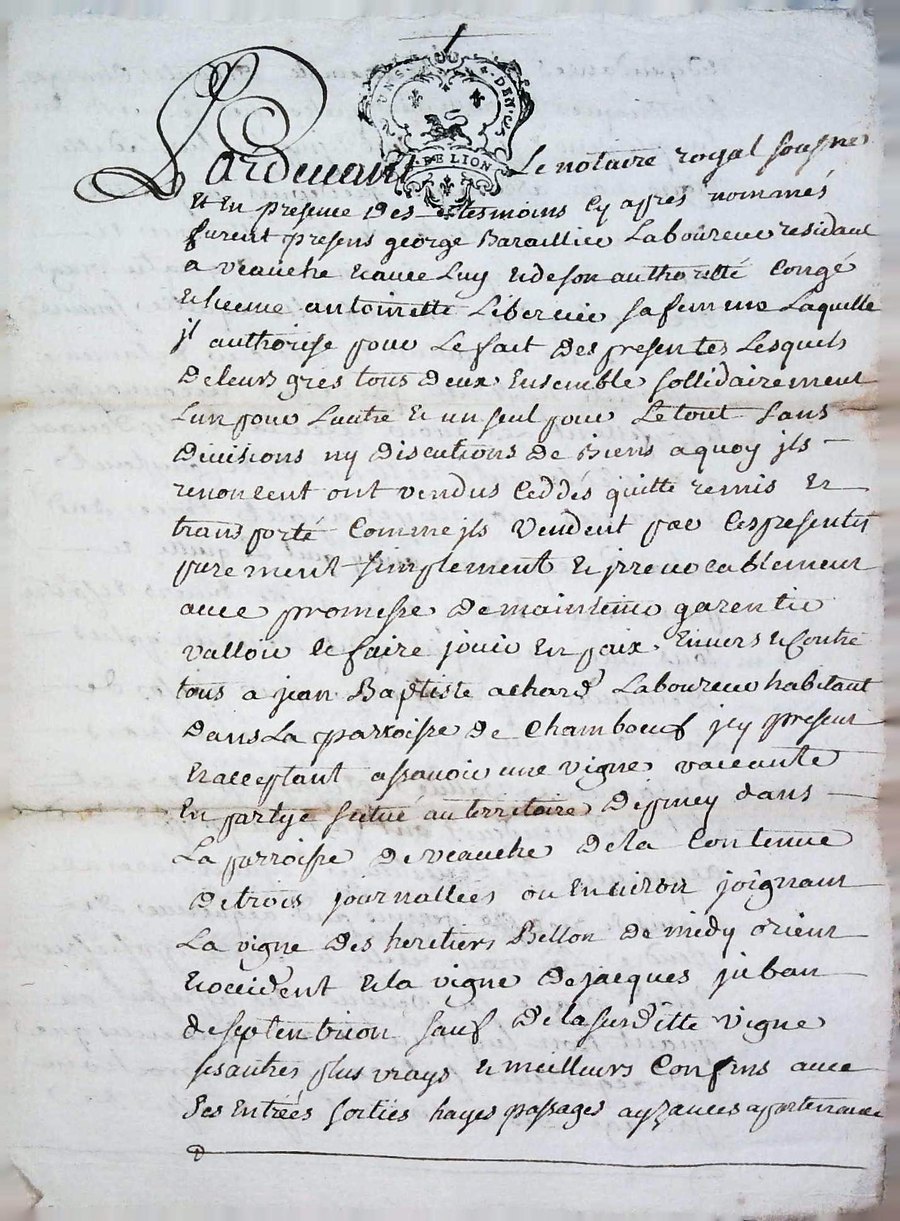 UN S. 4. DEN.
DE LION
Pardevant Le notaire royal sousne
Et En presence des tesmoins cy apres nommés
furent presens george Baraillier Laboureur residant
a veauche Et avec Luy Et de son authorité Congé
Et licence antoinette Libercier sa femme Laquelle
jl authorise pour Le fait des presentes Lesquels
De leurs grés tous deux Ensemble sollidairement
Lun pour Lautre Et un seul pour Le tout sans
Divisions ny Discutions de Biens a quoy jls
renoncent ont vendus Ceddés quitté remis Et
transporté Comme jls vendent par Ces presentes
purement simplement Et jrrevocablement
avec promesse De maintenir garentir
valloir Et faire jouir En paix Envers Et Contre
tous a jean Baptiste achard Laboureur habitant
Dans La parroisse de Chambœuf jcy present
Et acceptant assavoir une vigne vaccante
En partye scitué au territoire Depiney dans
La parroisse De veauche De la Contenue
De trois journallees ou Environ joignant
La vigne Des heritiers Bellon De midy orient
Et occident Et la vigne De jacques juban
de septentrion sauf De la susditte vigne
ses autres plus vrays Et meilleurs Confins avec
Ses Entrées sorties hayes passages ayzances apartenance